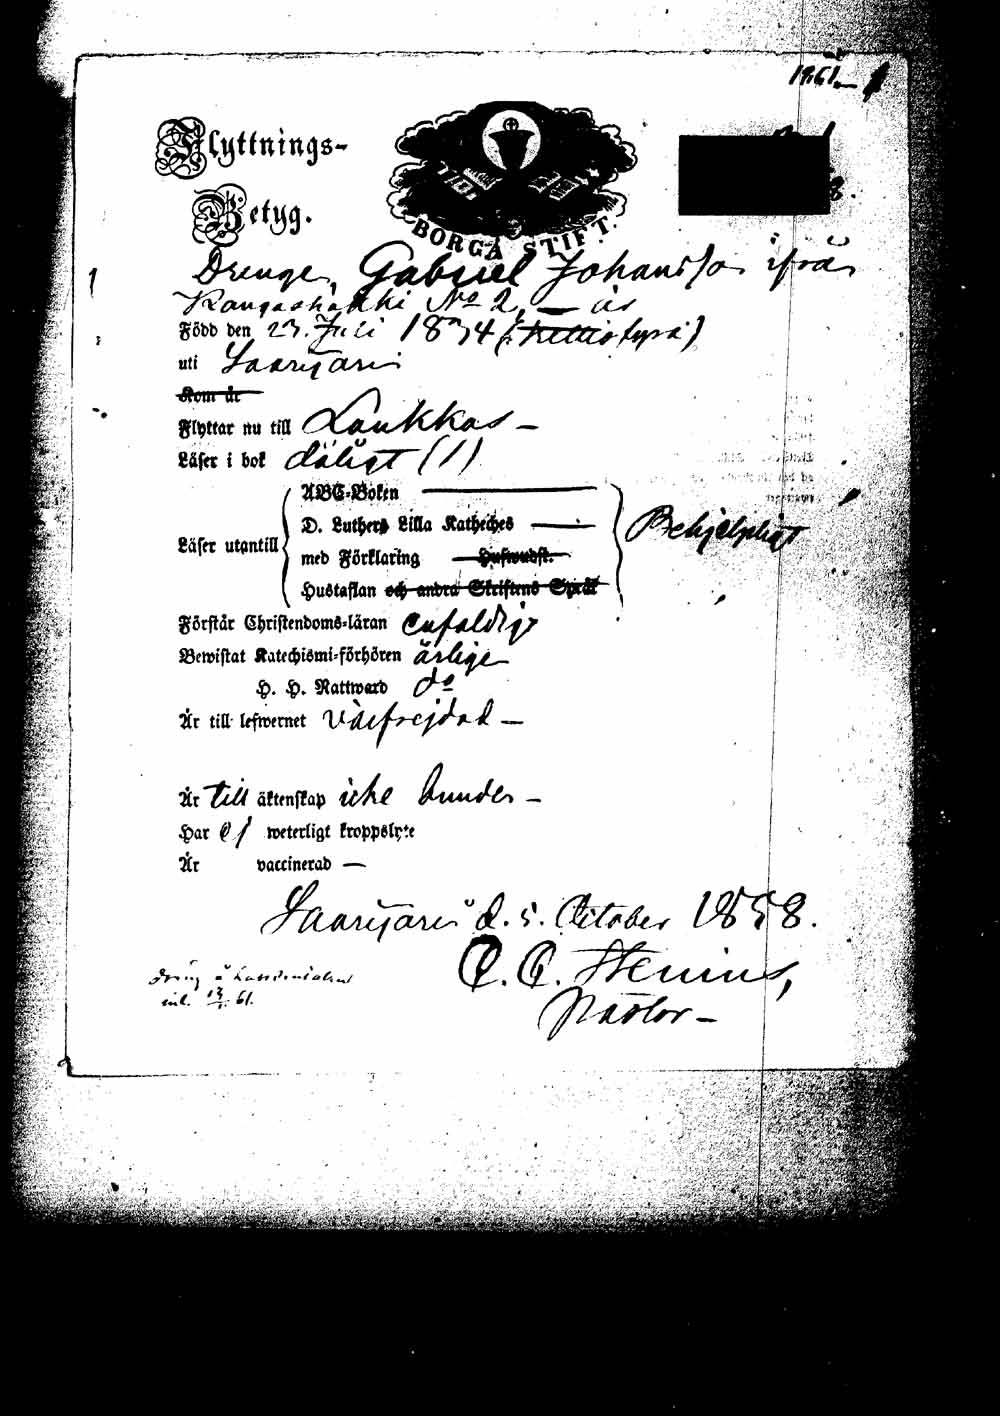 1961
Flyttnings-
Betyg.
BORGÅ STIFT.
Drengen Gabriel Johansson ifrån
Kangashäkki No 2, — är
Född den 23. Juli 1834
uti Saarijärvi
Kom år
Flyttar nu till Laukkas —
Läser i bok dåligt (1)
Läser utantill
ABC-Boken
D. Luthers Lilla Kateches
med Förklaring Hufwudst.
Hustaflan och andra Skriftens Språk
Behjelpligt
Förstår Christendoms-läran enfaldigt
Bewistat Katechismi-förhören årligen
H. H. Nattward do
Är till lefwernet välfrejdad —
Är till äktenskap icke bunden —
Har ej weterligt kroppslyte
Är vaccinerad —
Saarijärvi d. 5. October 1858.
Stenius,
Pastor —
61.